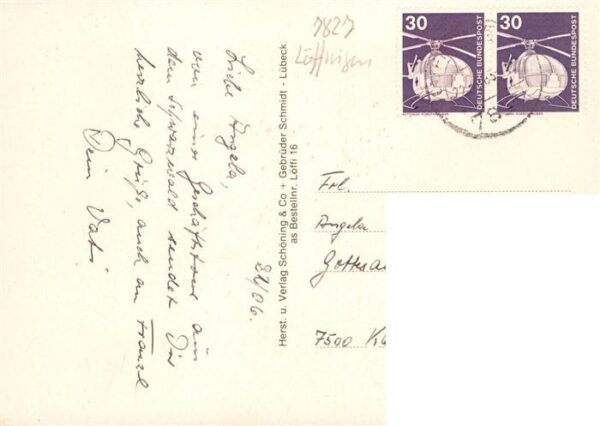 7827
Löffingen
30
DEUTSCHE BUNDESPOST
30
DEUTSCHE BUNDESPOST
Liebe Angela,
von einer Geschäftstour aus
dem Schwarzwald sendet Dir
herzliche Grüße, auch an
Dein Vati
22/06.
Herst. u. Verlag Schöning & Co + Gebrüder Schmidt - Lübeck
as Bestellnr. Löffi 16
Frl.
Angela
7500